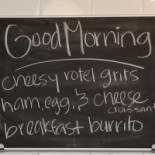 Good Morning
cheesy rotel grits
ham, egg, & cheese
croissant
breakfast burrito